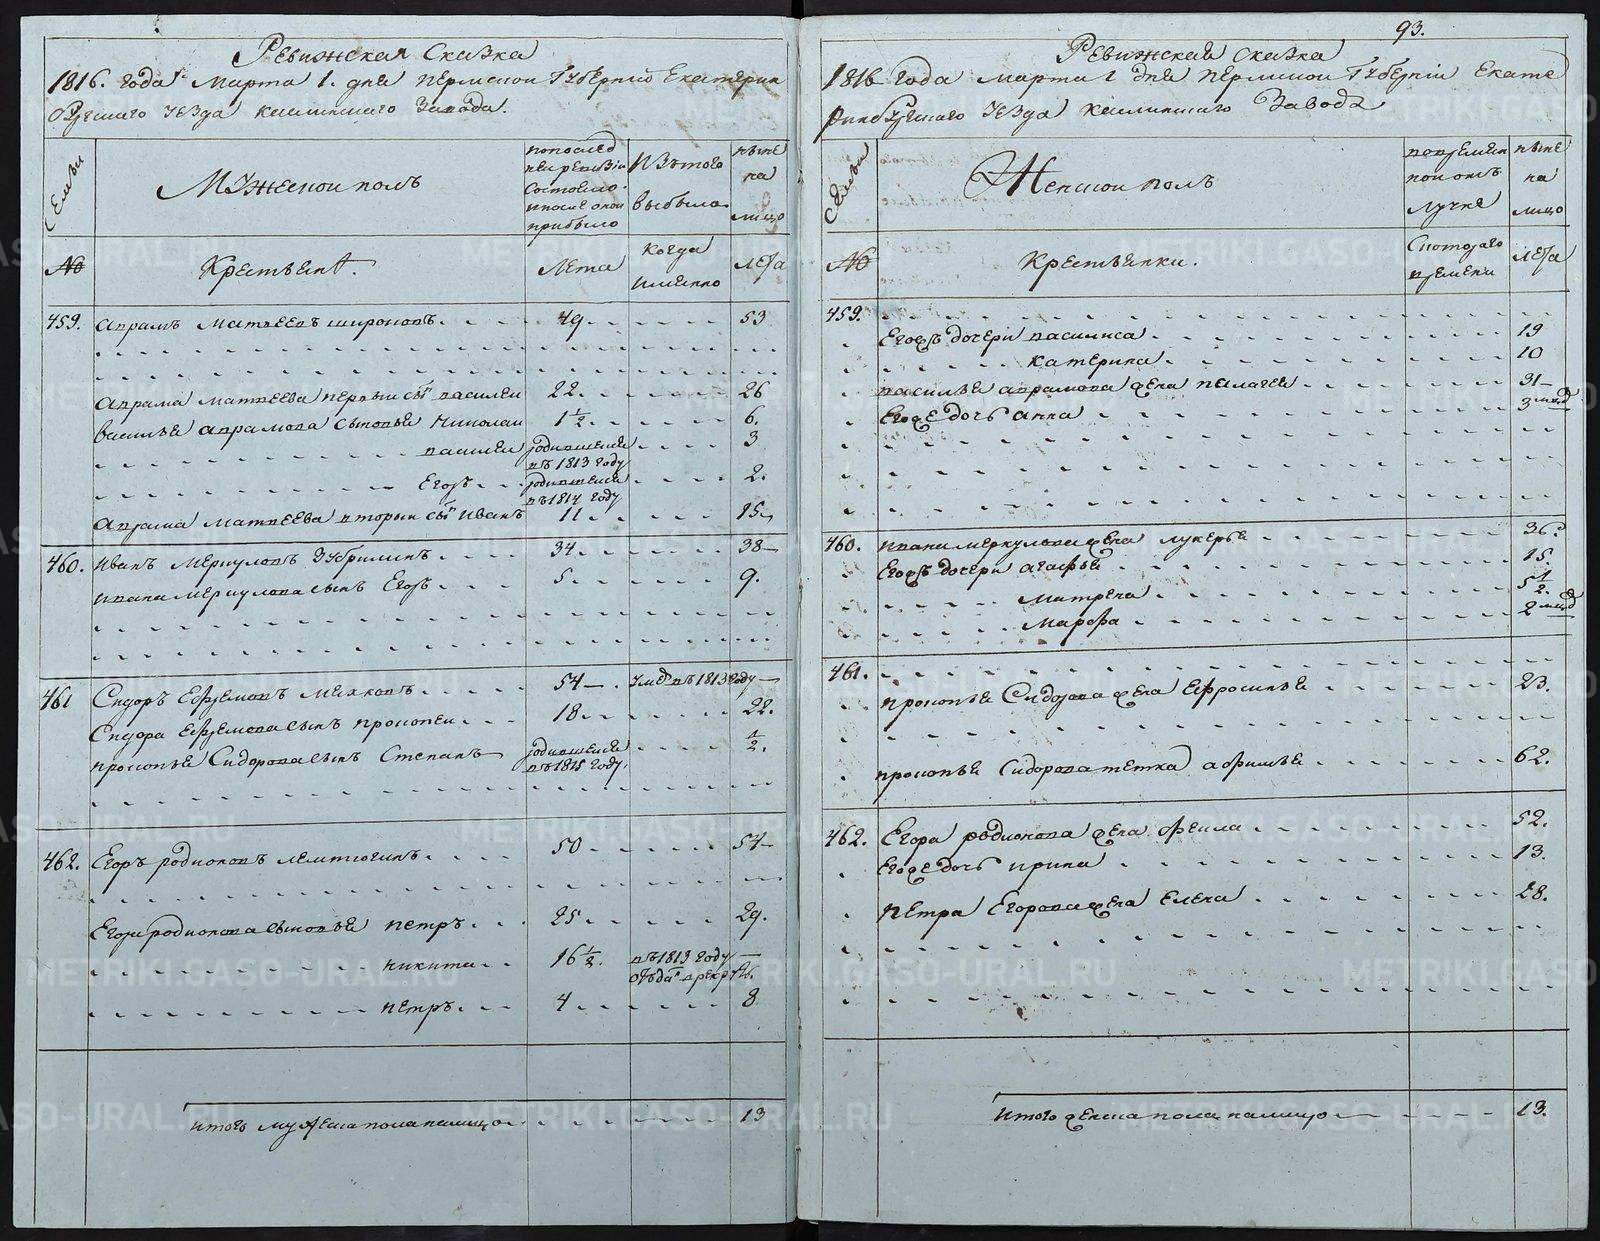 93.
Ревижская Сказка
1816. года Марта 1. дня Пермской Губернiи Екатерин
бургскаго уезда каслинскаго Завода.
Семьи
Мужескои полъ
попослед
ней ревизiи
состояло
и после онои
прибыло
Изътого
выбыло
ныне
на
лицо
№
Крестьянѣ.
Лета
когда
имянно
лета
459. Аврамъ Матвеевъ широковъ. 49. 53
Аврама Матвеева первыи сынъ василеи 22. 26
василья аврамова сыновья Николаи 1 1/2 6.
василеи родившейся въ 1813 году 3
Егоръ родившейся въ 1814 году 2.
Аврама Матвеева вторыи сынъ Иванъ 11 15
460. Иванъ Меркуловъ Зубрилинъ 34. 38
Ивана Меркулова сынъ Егоръ 5 9.
461 Сидоръ Ефремовъ 54 умръ въ 1813 году
Сидора Ефремова сынъ прокопеи 18 22.
прокопья Сидорова сынъ Степанъ родившейся въ 1815 году. 1/2.
462. Егоръ родионовъ лемтюгинъ. 50 54
Егора родионова сыновья петръ. 25 29.
никита 16 1/2. въ 1813 году отъданъ в рекруты.
петръ 4 8
итого мужеска пола налицо 13
Ревижская сказка
1816 года марта 1 дня Пермской Губернiи Екате
ринбургскаго уезда каслинскаго Завода
Семьи
Женскои полъ
вовремян
нои отъ
лучке
ныне
на
лицо
№
Крестьянки.
Скотораго
времени
лета
459.
Егожъ дочери василиса 19
катерина 10
василья аврамова жена палагея 31
Егоже дочь анна 3 мцд
460. ивана меркулова жена лукерья 36
Егожъ дочери агафья 15.
матрена 5 1/2.
марфа 2 мцд
461.
прокопья Сидорова жена Ефросинья 23.
прокопья Сидорова тетка афимья 62.
462. Егора родионова жена фекла 52.
Егоже дочь ирина 13.
петра Егорова жена Елена 28.
итого женска пола налицо 13.
METRIKI.GASO-URAL.RU